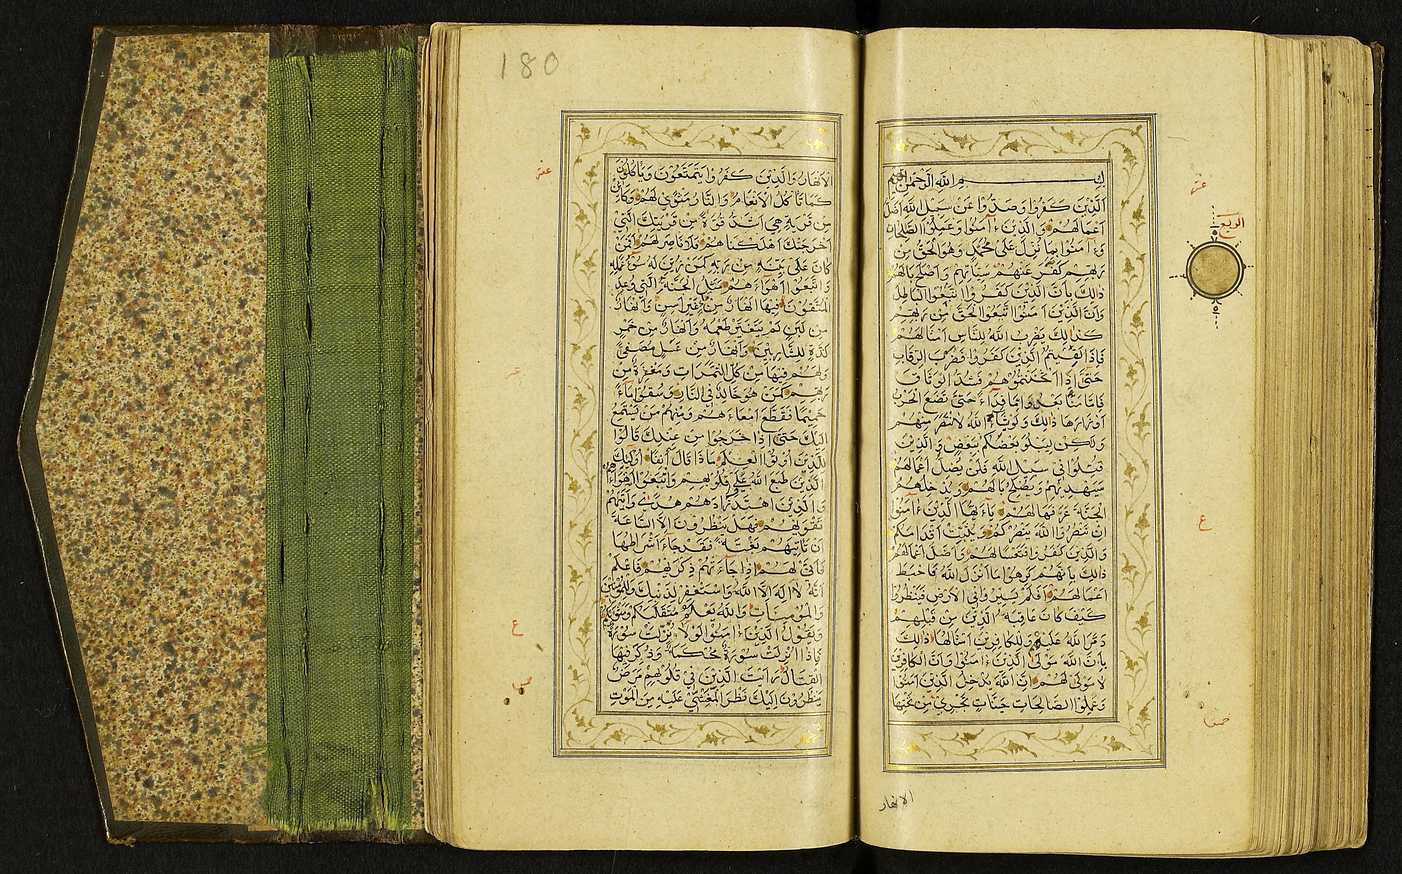 بسم الله الرحمن الرحيم
الذين كفروا وصدوا عن سبيل الله اضل
اعمالهم والذين ءامنوا وعملوا الصالحات
وءامنوا بما نزل على محمد وهو الحق من
ربهم كفر عنهم سيئاتهم واصلح بالهم
ذالك بان الذين كفروا اتبعوا الباطل
وان الذين امنوا اتبعوا الحق من ربهم
كذالك يضرب الله للناس امثالهم
فاذا لقيتم الذين كفروا فضرب الرقاب
حتى اذا اثخنتموهم فشدوا الوثاق
فاما منا بعد واما فداء حتى تضع الحرب
اوزارها ذالك ولو يشاء الله لانتصر منهم
ولاكن ليبلو بعضكم ببعض والذين
قتلوا في سبيل الله فلن يضل اعمالهم
سيهديهم ويصلح بالهم ويدخلهم
الجنة عرفها لهم ياءيها الذين ءامنوا
ان تنصروا الله ينصركم ويثبت اقدامكم
والذين كفروا فتعسا لهم واضل اعمالهم
ذالك بانهم كرهوا ما انزل الله فاحبط
اعمالهم افلم يسيروا في الارض فينظروا
كيف كان عاقبة الذين من قبلهم
دمر الله عليهم وللكافرين امثالها ذالك
بان الله مولى الذين ءامنوا وان الكافرين
لا مولى لهم ان الله يدخل الذين امنوا
وعملوا الصالحات جنات تجري من تحتها
الانهار
عشر
الربع
ع
180
الانهار والذين كفروا يتمتعون وياكلون
كما تاكل الانعام والنار مثوى لهم وكاين
من قرية هي اشد قوة من قريتك التي
اخرجتك اهلكناهم فلا ناصر لهم افمن
كان على بينة من ربه كمن زين له سوء عمله
واتبعوا اهواءهم مثل الجنة التي وعد
المتقون فيها انهار من ماء غير اسن وانهار
من لبن لم يتغير طعمه وانهار من خمر
لذة للشاربين وانهار من عسل مصفى
ولهم فيها من كل الثمرات ومغفرة من
ربهم كمن هو خالد في النار وسقوا ماء
حميما فقطع امعاءهم ومنهم من يستمع
اليك حتى اذا خرجوا من عندك قالوا
للذين اوتوا العلم ماذا قال انفا اولئك
الذين طبع الله على قلوبهم واتبعوا اهواءهم
والذين اهتدوا زادهم هدى واتيهم
تقويهم فهل ينظرون الا الساعة
ان تاتيهم بغتة فقد جاء اشراطها
فانى لهم اذا جاءتهم ذكريهم فاعلم
انه لا اله الا الله واستغفر لذنبك وللمؤمنين
والمؤمنات والله يعلم متقلبكم ومثويكم
ويقول الذين ءامنوا لولا نزلت سورة
فاذا انزلت سورة محكمة وذكر فيها
القتال رايت الذين في قلوبهم مرض
ينظرون اليك نظر المغشي عليه من الموت
عشر
ع